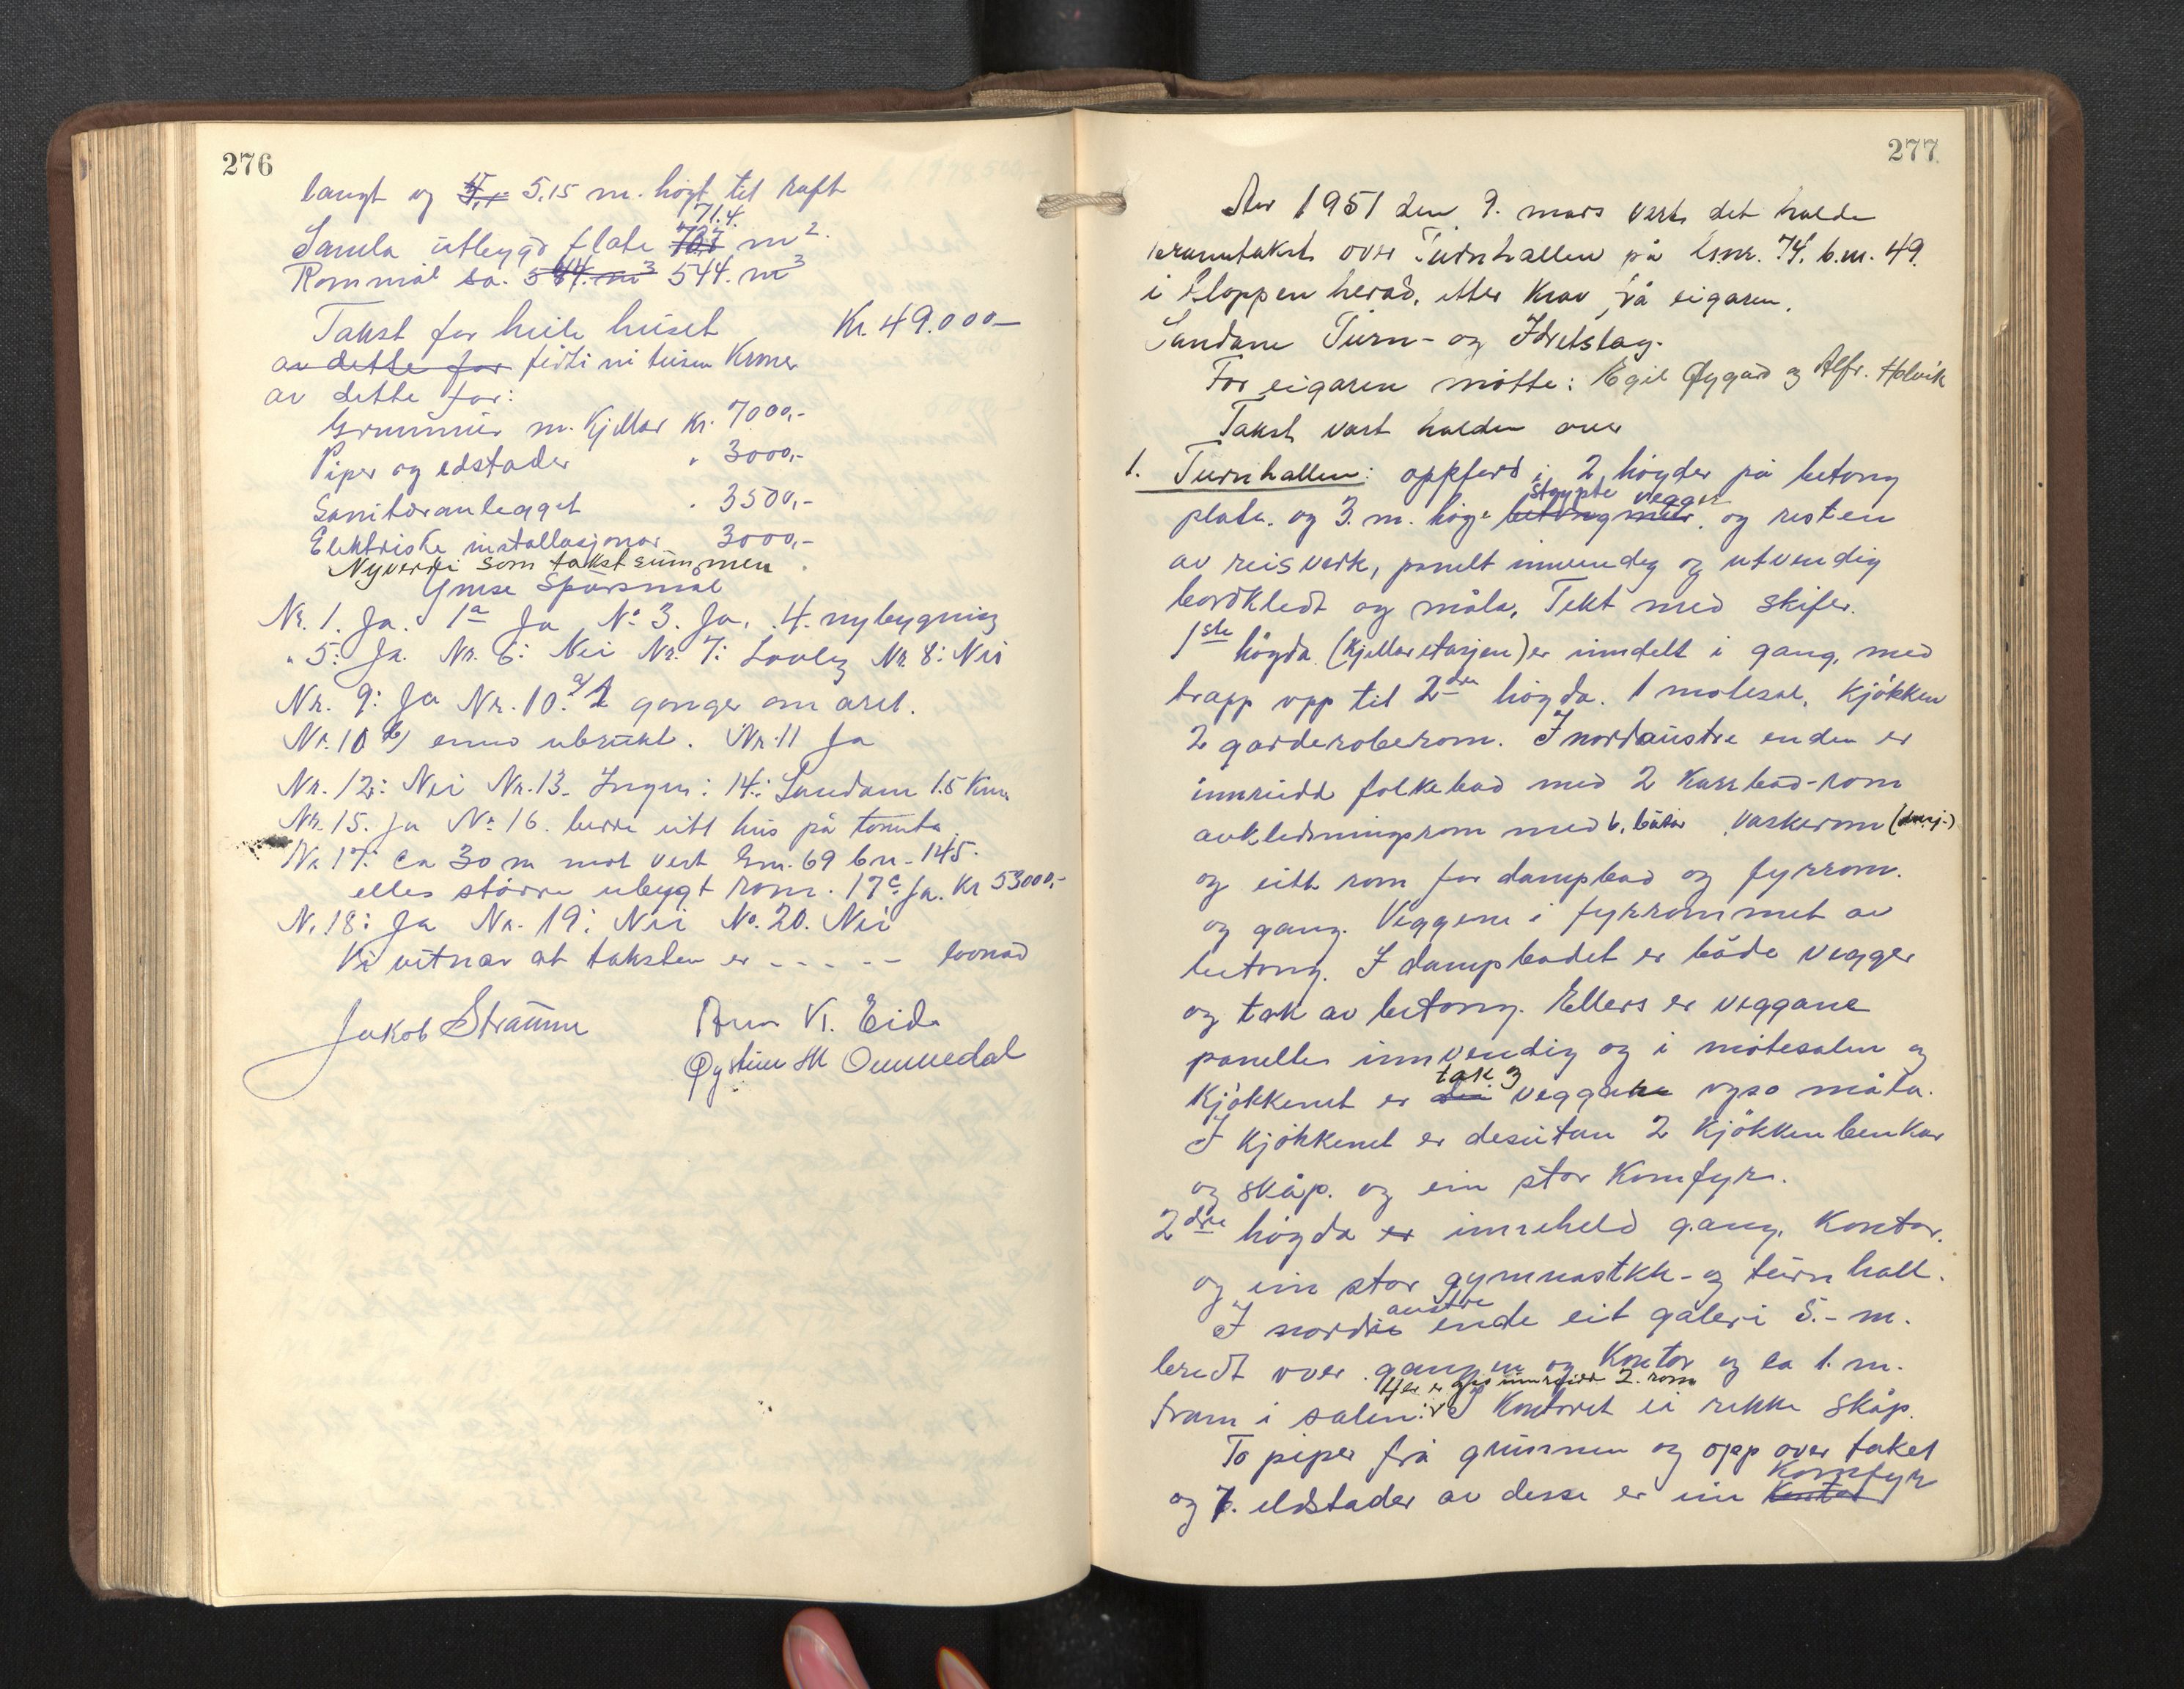 276
langt og 5,15 m. högt til raft
71.4.
Samla utbygd flate 767 m².
Rommål ca. 584. m³ 544. m³
Takst for heile huset Kr. 49.000—
av dette for förti ni tusen kroner
av dette for:
Grunnmur m. Kjellar Kr. 7000,-
Piper og eldstader " 3000,-
Sanitæranlegget " 3500,-
Elektriske installasjonar 3000,-
Nyverdi som takstsummen.
Ymse Spörsmål
Nr. 1. Ja. 1a Ja No 3. Ja. 4. nybygning
" 5: Ja. Nr. 6: Nei Nr. 7: Lovleg Nr. 8: Nei
Nr. 9: Ja Nr. 10. a/ 2 gonger om året.
Nr. 10 b) enno ubrukt. Nr. 11 Ja
Nr. 12: Nei Nr. 13. Ingen: 14: Sandane 1.5 km
Nr. 15. Ja No 16. berre eitt hus på tomta
Nr 17: Ca 30 m mot vest Gnr. 69 bn- 145.
elles större ubygt rom. 17c Ja. Kr 53000,-
Nr. 18: Ja Nr. 19: Nei No. 20. Nei
Vi vitnar at taksten er - - - - - lovnad
Jakob Straume
Eide
Øystein M Ommedal
277
År 1951 den 9. mars vart det halde
branntakst over Turnhallen på G.nr. 74. b.nr. 49.
i Gloppen herad, etter krav frå eigaren,
Sandane Turn- og Idretslag.
For eigaren mötte: Egil Øygard og Alfr. Holvik
Takst vart halden over
1. Turnhallen: oppförd i 2 högder på betong
stöypte vegger
plate. og 3. m. höge betong mur. og resten
av reisverk, panelt innvendig og utvendig
bordkledt og måla. Tekt med skifer.
1ste högda (Kjellaretasjen) er inndelt i gang, med
trapp opp til 2dre högda. 1 mötesal, kjökken
2 garderoberom. I nordaustre enden er
innreidd folkebad med 2 karbad-rom
avkledningsrom med 6. båsar, vaskerom (dusj-)
og eitt rom for dampbad og fyrrom.
og gang. Veggene i fyrrommet av
betong. I dampbadet er både vegger
og tak av betong. Ellers er veggane
panelte innvendig og i mötesalen og
tak og
kjökkenet er veggane ogso måla.
I kjökkenet er desutan 2 kjökkenbenkar
og skåp. og ein stor komfyr.
2dre högda er inneheld gang, kontor.
og ein stor gymnastikk- og turnhall.
austre
I nordre ende eit galeri 5.- m.
bredt over gangen og kontor og ca 1. m.
Her er innreidd 2. rom
fram i salen. I kontoret ei rekke skåp.
To piper frå grunnen og opp over taket
Komfyr
og 7. eldstader av desse er ein kontor